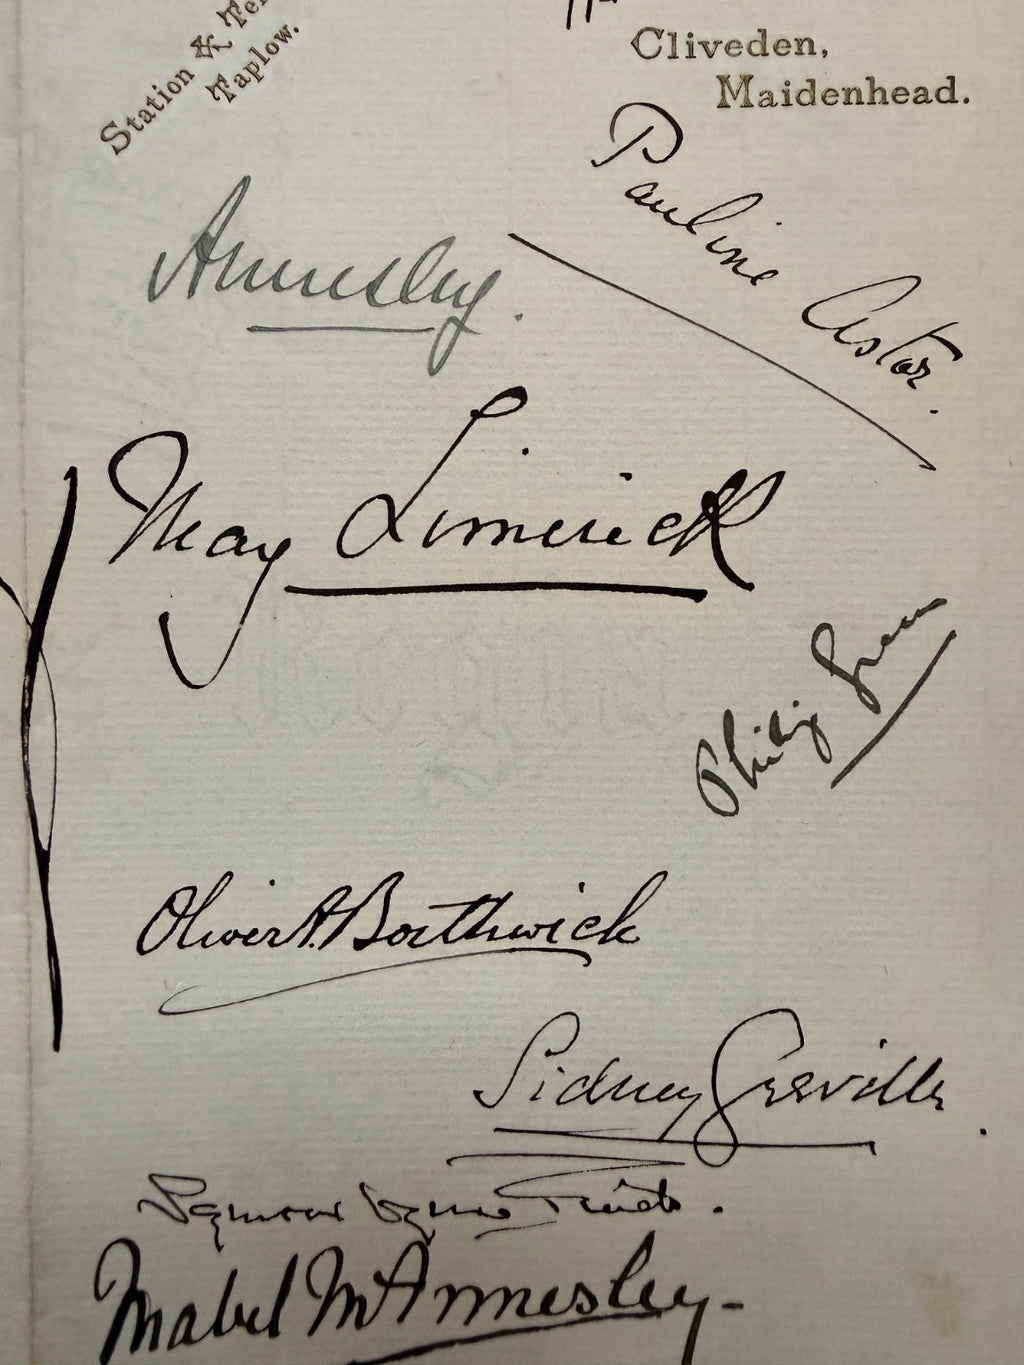 Station & Te
Taplow.
Cliveden,
Maidenhead.
Pauline Astor.
Annesley.
May Limerick
Philip
Oliver A. Borthwick
Sidney Greville.
Seymour
Mabel M Annesley-